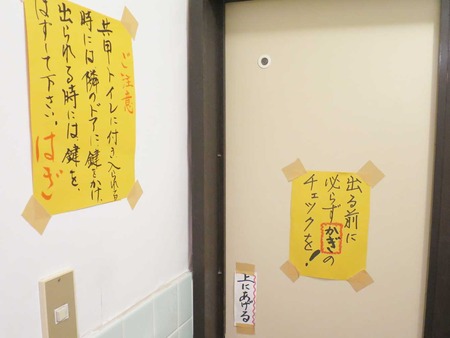 ご注意
共用トイレに付き入られる
時には隣のドアに鍵をかけ、
出られる時には、鍵を、
はずして下さい。はぎ
出る前に
必らずかぎの
チェックを!
上にあげる